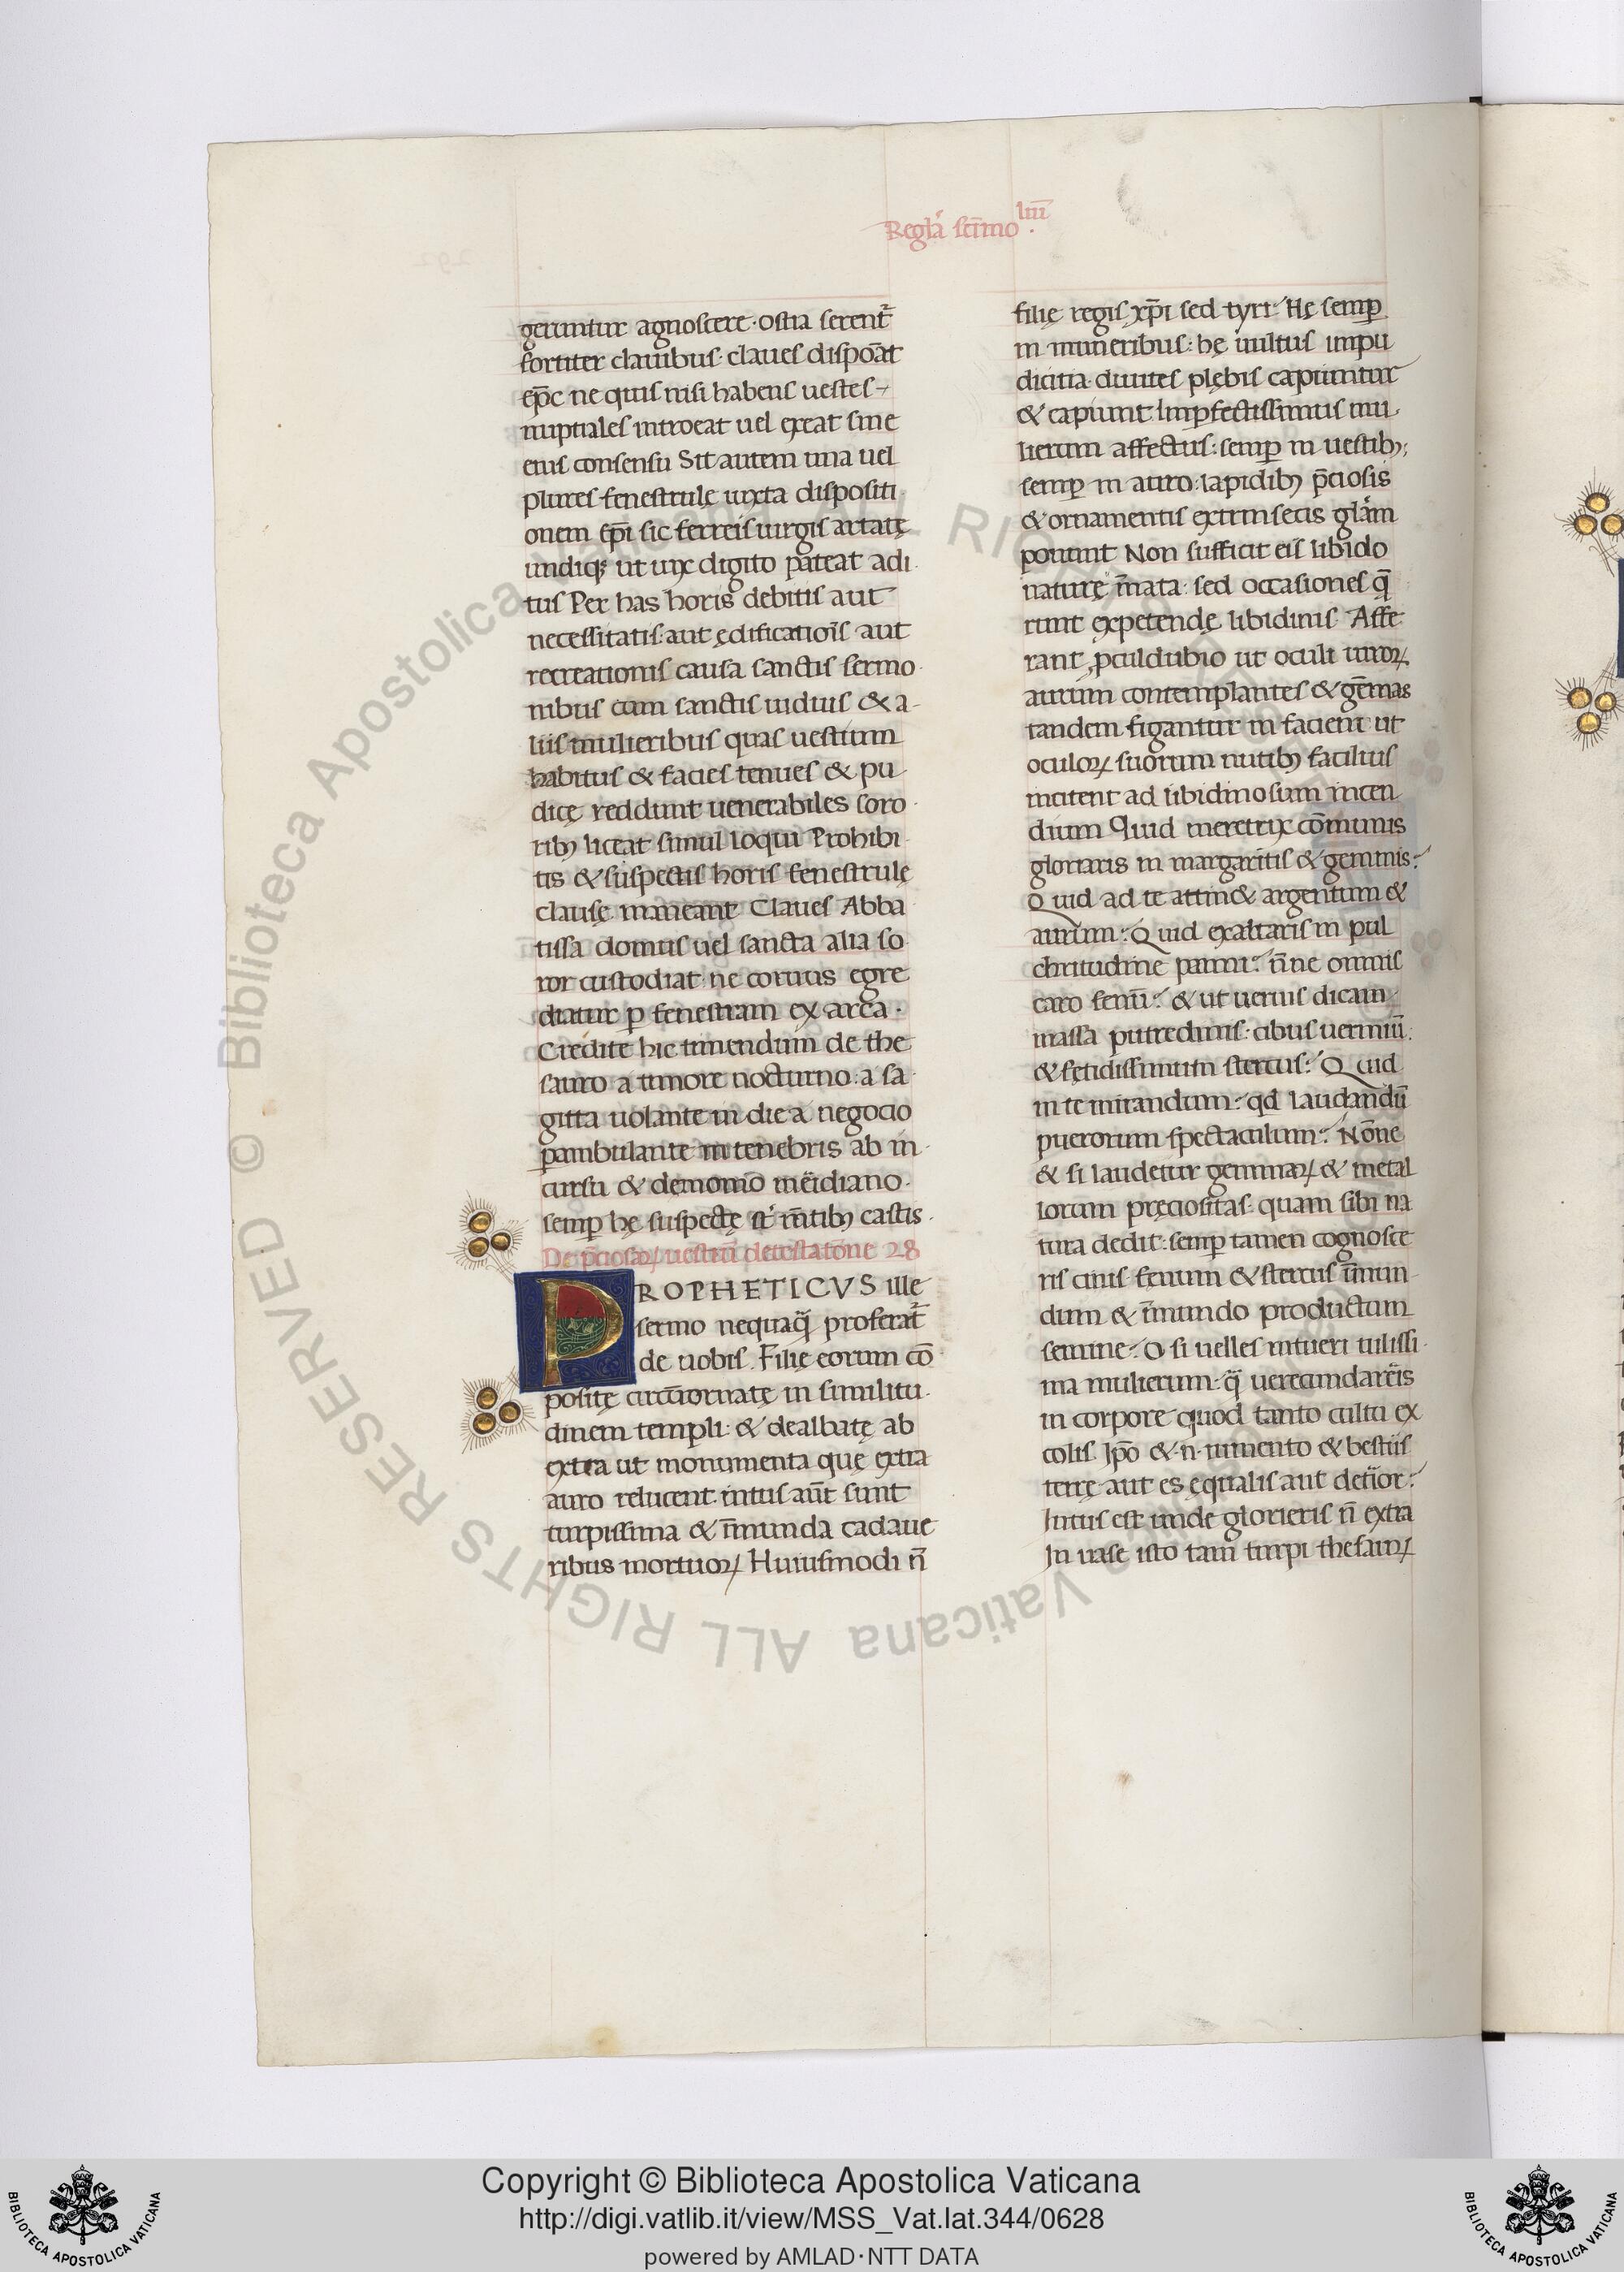 Regl'a scīmo liii
geruntur agnoscere. Ostia serent᷑
fortiter clauibus. claues dispoāt
ep̄c ne quis nisi habens uestes
nuptiales introeat uel exeat sine
eius consensu Sit autem una uel
plures fenestrulę iuxta dispositi
onem ep̄i sic ferreis uirgis artatę
undiqꝫ ut uix digito pateat adi
tus Per has horis debitis aut
necessitatis. aut ędificatiōis aut
recreationis causa sanctis sermo
nibus cum sanctis uiduis & a
liis mulieribus quas uestium
habitus & facies tenues & pu
dicę reddunt uenerabiles soro
ribꝫ liceat simul loqui Prohibi
tis & suspectis horis fenestrulę
clausę maneant Claues Abba
tissa domus uel sancta alia so
ror custodiat. ne coruus egre
diatur ꝑ fenestram ex arca.
Credite hic timendum de the
sauro. a timore nocturno: a sa
gitta uolante in die a negocio
ꝑambulante in tenebris ab in
cursu & demonio m̄eidiano.
semꝑ hę suspectę st̄ m̄tibꝫ castis.
De p̄ciosaꝝ uestiū detestatōne 28
PROPHETICVS ille
sermo nequaq̄ꝫ proferat᷑
de uobis. Filię eorum cō
positę circūornatę in similitu
dinem templi: & dealbatę ab
extra ut monumenta quę extra
auro relucent. intus aūt sunt
turpissima & īmunda cadaue
ribus mortuoꝝ Huiusmodi n̄
filię regis xp̄i sed tyri: Hę semꝑ
in muneribus: hę uultus impu
dicitia. diuites plębis capiuntur
& capiunt Imꝑfectissimus mu
lierum affectus: semꝑ in uestibꝫ;
semꝑ in auro: lapidibꝫ p̄ciosis
& ornamentis extrinsecis gl'am
ponunt Non sufficit eis libido
naturę īnata: sed occasiones q̄
runt expetendę libidinis Affe
rant ꝓculdubio ut oculi uiroꝝ
aurum contemplantes & gēmas
tandem figantur in faciem ut
oculoꝝ suorum nutibꝫ facilius
incitent ad libidinosum incen
dium Quid meretrix cōmunis
gloriaris in margaritis & gemmis?
Quid ad te attin& argentum &
aurum? Quid exaltaris in pul
chritudine panni? n̄ne omnis
caro fenū? & ut uerius dicam
massa putredinis. cibus uermiū.
& fętidissimum stercus? Quid
in te mirandum? qd laudandū
puerorum spectaculum? Nōne
& si laudetur gemmaꝝ & metal
lorum pręciositas. quam sibi na
tura dedit: semꝑ tamen cognosce
ris cinis fenum & stercus īmun
dum & īmundo productum
semine? O si uelles intueri uilissi
ma mulierum. q̄ꝫ uerecundareīs
in corpore quod tanto cultu ex
colis. Ip̄o & n iumento & bestiis
terrę aut es ęqualis aut deṫior?
Intus est unde glorieris n̄ extra
In uase isto tam turpi thesauꝝ
Copyright © Biblioteca Apostolica Vaticana
http://digi.vatlib.it/view/MSS_Vat.lat.344/0628
powered by AMLAD·NTT DATA
BIBLIOTECA APOSTOLICA VATICANA
BIBLIOTECA APOSTOLICA VATICANA
© Biblioteca Apostolica Vaticana ALL RIGHTS RESERVED